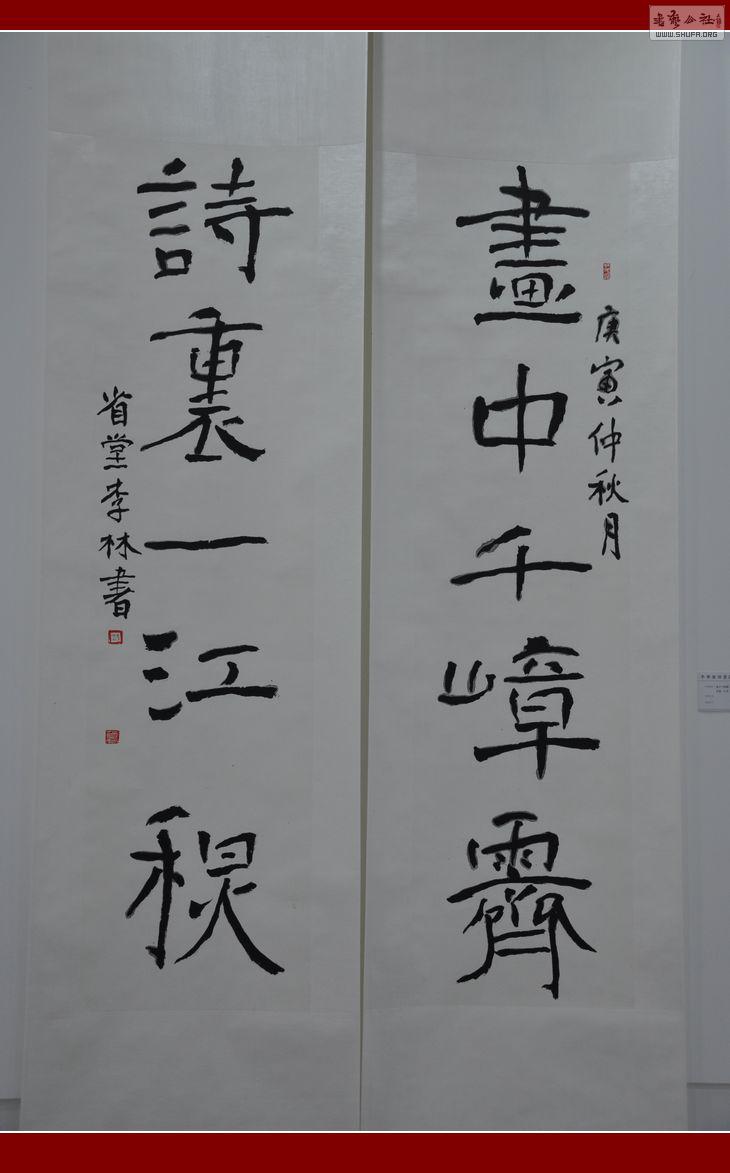 書藝公社
WWW.SHUFA.ORG
庚寅仲秋月
畫中千嶂霽
詩裏一江秌
省堂李林書